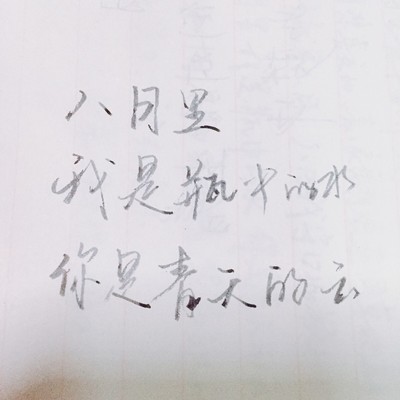 八月里
我是瓶中的水
你是青天的云